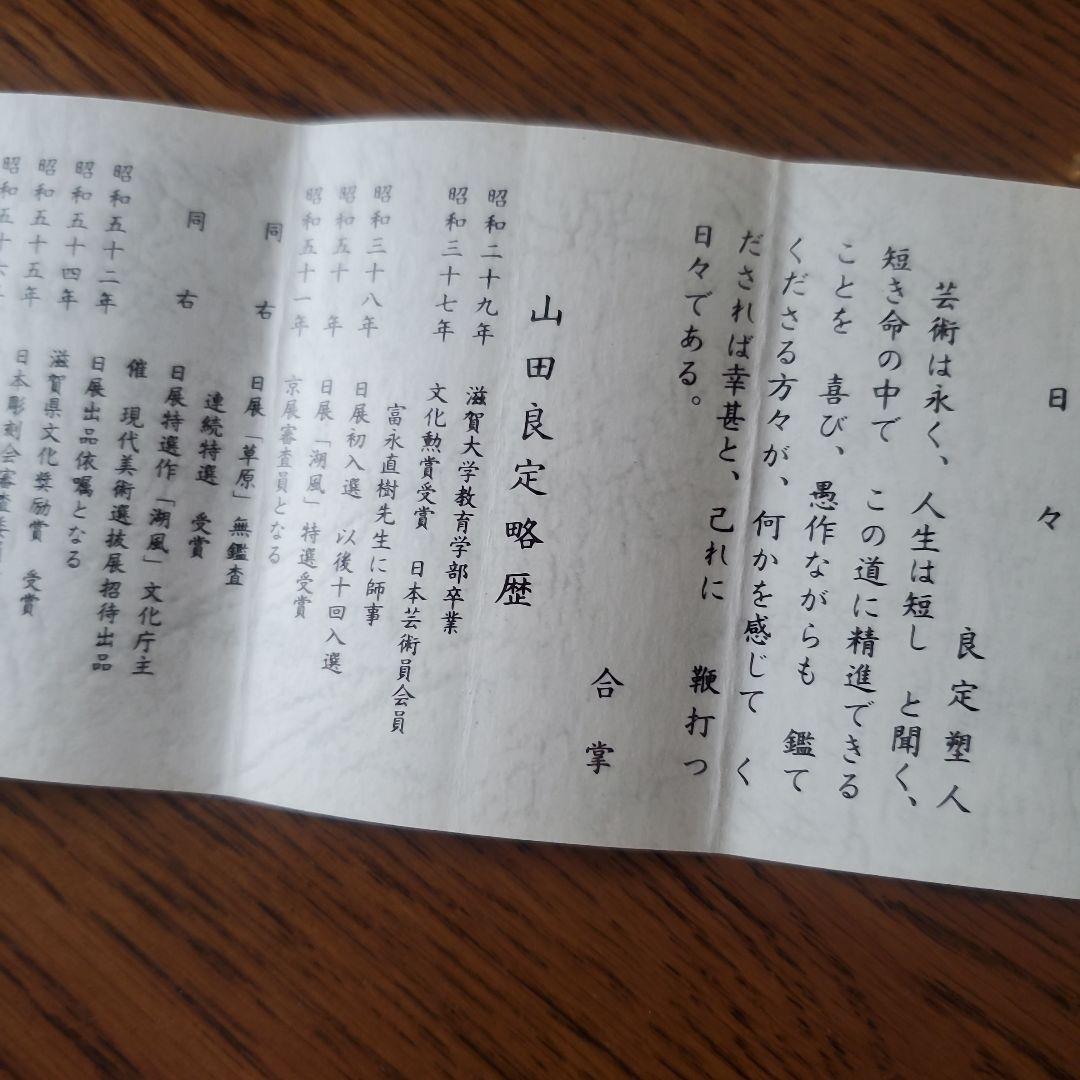 日々
良定塑人
芸術は永く、人生は短し と聞く、
短き命の中で この道に精進できる
ことを 喜び、愚作ながらも 鑑て
くださる方々が、何かを感じて く
だされば幸甚と、己れに 鞭打つ
日々である。
合掌
山田良定略歴
昭和二十九年 滋賀大学教育学部卒業
昭和三十七年 文化勲賞受賞 日本芸術員会員
富永直樹先生に師事
昭和三十八年 日展初入選 以後十回入選
昭和五十年 日展「湖風」特選受賞
昭和五十一年 京展審査員となる
同右 日展「草原」無鑑査
連続特選 受賞
同右 日展特選作「湖風」文化庁主
催 現代美術選抜展招待出品
昭和五十二年 日展出品依嘱となる
昭和五十四年 滋賀県文化奨励賞 受賞
昭和五十五年 日本彫刻会審査
昭和五十六年